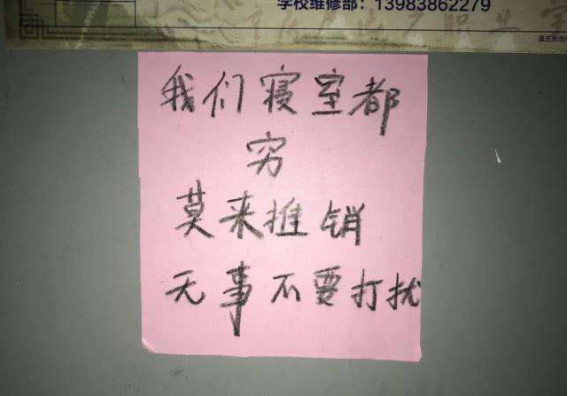 学校维修部：13983862279
我们寝室都
穷
莫来推销
无事不要打扰